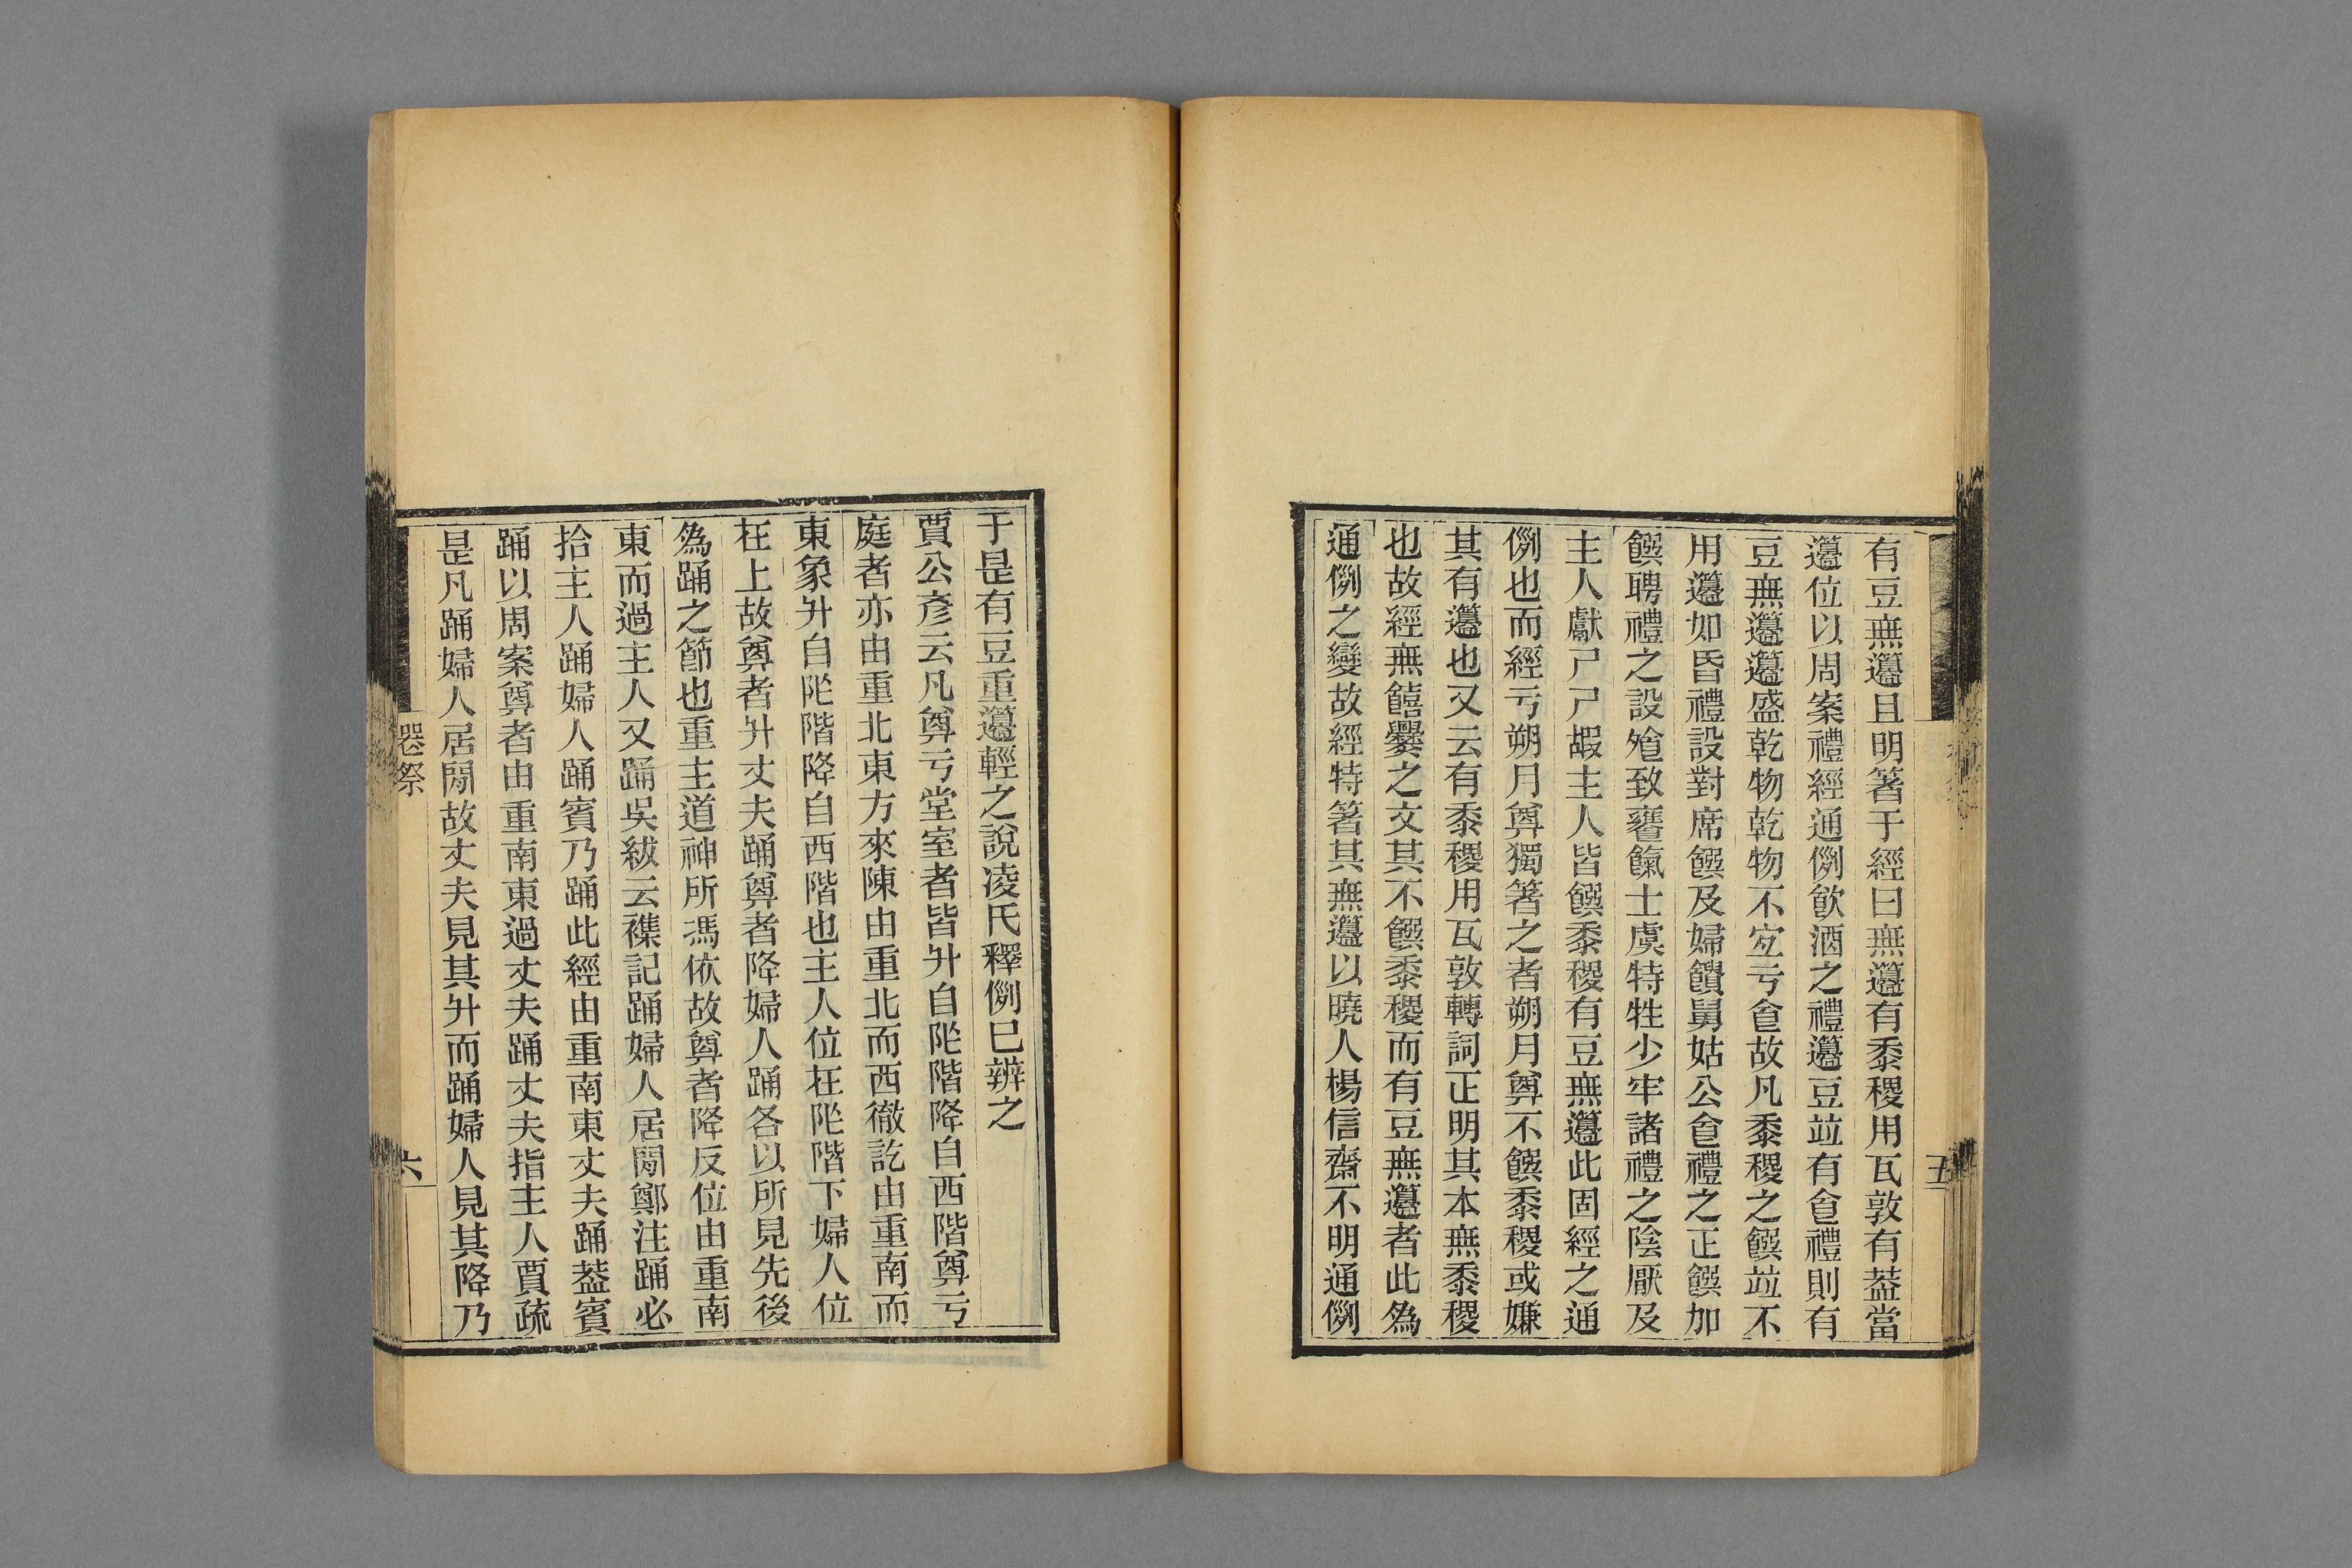 有豆無籩且明箸于經曰無籩有黍稷用瓦敦有葢當
籩位以周案禮經通例飲酒之禮籩豆竝有食禮則有
豆無籩籩盛乾物乾物不宜亏食故凡黍稷之饌竝不
用籩如昏禮設對席饌及婦饋舅姑公食禮之正饌加
饌聘禮之設飧致饔餼士虞特牲少牢諸禮之陰厭及
主人獻尸尸嘏主人皆饌黍稷有豆無籩此固經之通
例也而經亏朔月奠獨箸之者朔月奠不饌黍稷或嫌
其有籩也又云有黍稷用瓦敦轉詞正明其本無黍稷
也故經無饎爨之文其不饌黍稷而有豆無籩者此為
通例之變故經特箸其無籩以曉人楊信齋不明通例
五
于是有豆重籩輕之說凌氏釋例巳辨之
賈公彥云凡奠亏堂室者皆升自阼階降自西階奠亏
庭者亦由重北東方來陳由重北而西徹訖由重南而
東象升自阼階降自西階也主人位在阼階下婦人位
在上故奠者升丈夫踊奠者降婦人踊各以所見先後
為踊之節也重主道神所馮依故奠者降反位由重南
東而過主人又踊吳紱云襍記踊婦人居閒鄭注踊必
拾主人踊婦人踊賓乃踊此經由重南東丈夫踊葢賓
踊以周案奠者由重南東過丈夫踊丈夫指主人賈疏
是凡踊婦人居閒故丈夫見其升而踊婦人見其降乃
喪祭
六